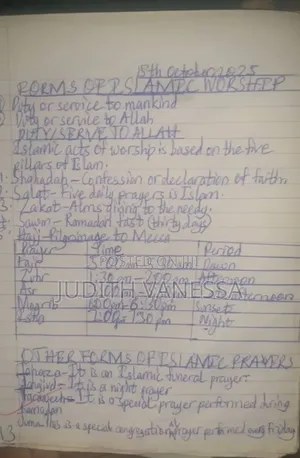 18th October 2025
FORMS OF ISLAMIC WORSHIP
Duty or service to mankind
Duty or service to Allah
DUTY/SERVE TO ALLAH
Islamic acts of worship is based on the five
pillars of Islam.
Shahadah - Confession or declaration of faith.
Salat - Five daily prayers is Islam.
Zakat - Alms giving to the needy.
Sawm - Ramadan fast (thirty days)
Hajj - Pilgrimage to Mecca
Prayer Time Period
Fajr Dawn
Zuhr Afternoon
Asr afternoon
Magrib 6:00pm - 6:30pm Sunset
Night
POSTED ON
JUDITH VANESSA
OTHER FORMS OF ISLAMIC PRAYERS
Janaza - It is an Islamic funeral prayer
It is a night prayer
It is a special prayer performed during
Ramadan
This is a special congregational prayer performed every Friday